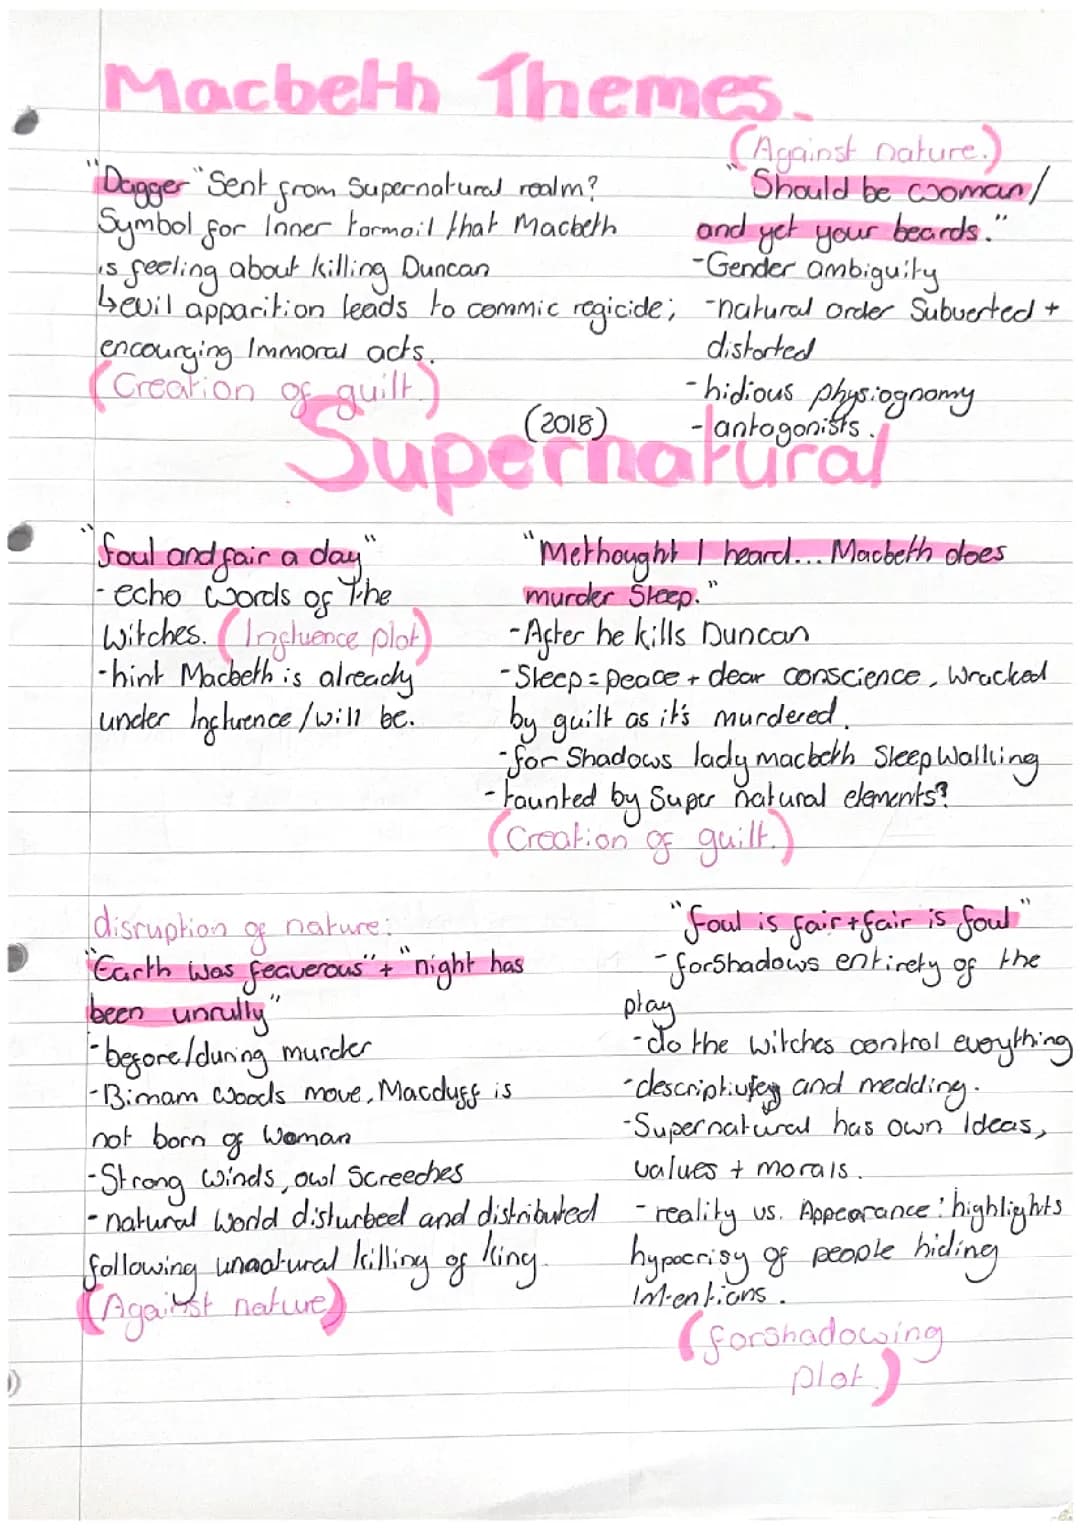 Macbeth Themes.
"Dagger" Sent from Supernatural realm?
Symbol for Inner tormoil that Macbeth
is feeling about killing Duncan
↳ evil apparition leads to commic regicide;
encourging Immoral acts.
(Creation of guilt.)
(Against nature.)
"Should be woman/
and yet your beards."
-Gender ambiguity
-natural order Subverted +
distorted
-hidious physiognomy
-antagonists.
(2018)
Supernatural
"foul and fair a day"
-echo words of The
Witches. (Influence plot)
-hint Macbeth is already
under Influence/will be.
"Methought I heard... Macbeth does
murder Sleep."
-After he kills Duncan
-Sleep = peace + clear conscience, Wracked
by guilt as it's murdered.
-for Shadows lady macbeth SleepWalking
-taunted by Super natural elements?
(Creation of guilt.)
disruption of nature:
"Earth was feaverous" + "night has
been unrully"
-before/during murder
-Birnam woods move, Macduff is
not born of Woman
-Strong Winds, owl Screeches
-natural World disturbed and distributed
following unnatural killing of king.
(Against nature)
"foul is fair + fair is foul"
-forShadows entirety of the
play
-do the witches control everything
and medding.
-Supernatural has own Ideas,
values + morals.
-reality vs. Appearance: highlights
hypocrisy of people hiding
Intentions.
(forshadowing
plot.)